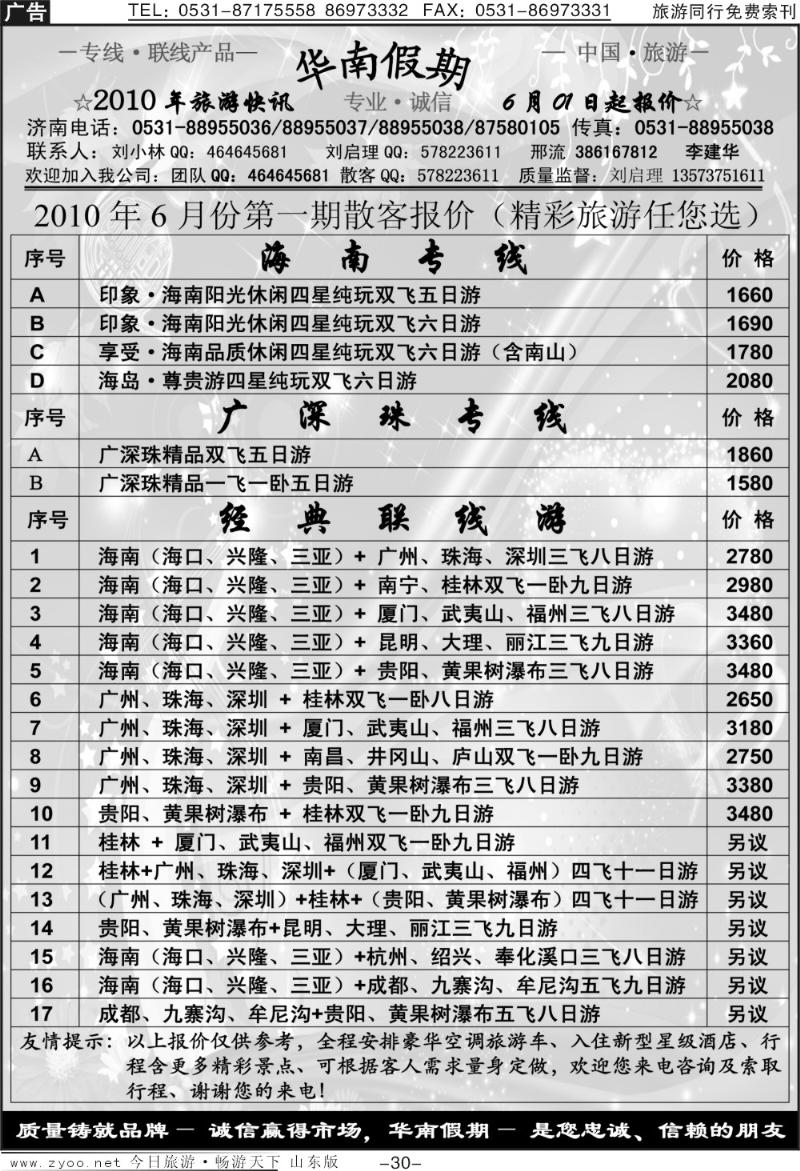 广告
TEL: 0531-87175558 86973332 FAX: 0531-86973331 旅游同行免费索刊
—专线·联线产品— 华南假期 — 中国·旅游—
☆2010年旅游快讯 专业·诚信 6月01日起报价☆
济南电话：0531-88955036/88955037/88955038/87580105 传真：0531-88955038
联系人：刘小林 QQ：464645681 刘启理 QQ：578223611 邢流 386167812 李建华
欢迎加入我公司：团队QQ：464645681 散客QQ：578223611 质量监督：刘启理 13573751611
2010年6月份第一期散客报价（精彩旅游任您选）
序号 海南专线 价格
A 印象·海南阳光休闲四星纯玩双飞五日游 1660
B 印象·海南阳光休闲四星纯玩双飞六日游 1690
C 享受·海南品质休闲四星纯玩双飞六日游（含南山） 1780
D 海岛·尊贵游四星纯玩双飞六日游 2080
序号 广深珠专线 价格
A 广深珠精品双飞五日游 1860
B 广深珠精品一飞一卧五日游 1580
序号 经典联线游 价格
1 海南（海口、兴隆、三亚）+ 广州、珠海、深圳三飞八日游 2780
2 海南（海口、兴隆、三亚）+ 南宁、桂林双飞一卧九日游 2980
3 海南（海口、兴隆、三亚）+ 厦门、武夷山、福州三飞八日游 3480
4 海南（海口、兴隆、三亚）+ 昆明、大理、丽江三飞九日游 3360
5 海南（海口、兴隆、三亚）+ 贵阳、黄果树瀑布三飞八日游 3480
6 广州、珠海、深圳 + 桂林双飞一卧八日游 2650
7 广州、珠海、深圳 + 厦门、武夷山、福州三飞八日游 3180
8 广州、珠海、深圳 + 南昌、井冈山、庐山双飞一卧九日游 2750
9 广州、珠海、深圳 + 贵阳、黄果树瀑布三飞八日游 3380
10 贵阳、黄果树瀑布 + 桂林双飞一卧九日游 3480
11 桂林 + 厦门、武夷山、福州双飞一卧九日游 另议
12 桂林+广州、珠海、深圳+（厦门、武夷山、福州）四飞十一日游 另议
13 （广州、珠海、深圳）+桂林+（贵阳、黄果树瀑布）四飞十一日游 另议
14 贵阳、黄果树瀑布+昆明、大理、丽江三飞九日游 另议
15 海南（海口、兴隆、三亚）+杭州、绍兴、奉化溪口三飞八日游 另议
16 海南（海口、兴隆、三亚）+成都、九寨沟、牟尼沟五飞九日游 另议
17 成都、九寨沟、牟尼沟+贵阳、黄果树瀑布五飞八日游 另议
友情提示：以上报价仅供参考，全程安排豪华空调旅游车、入住新型星级酒店、行
程含更多精彩景点、可根据客人需求量身定做，欢迎您来电咨询及索取
行程、谢谢您的来电！
质量铸就品牌— 诚信赢得市场，华南假期— 是您忠诚、信赖的朋友
www.zyoo.net 今日旅游·畅游天下 山东版 -30-